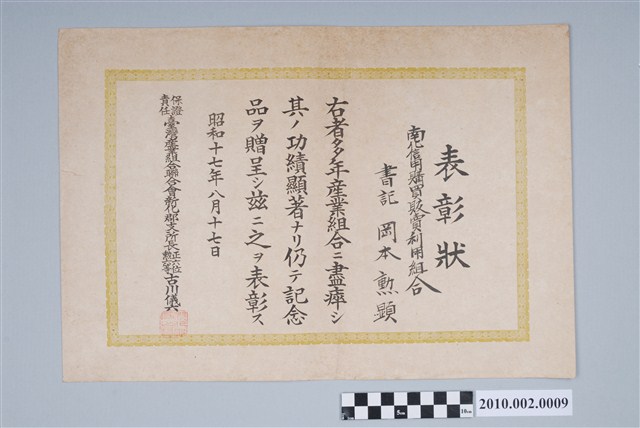 表彰狀
南化信用購買販賣利用組合
書記 岡本勲顯
右者多年産業組合ニ盡瘁シ
其ノ功績顯著ナリ仍テ記念
品ヲ贈呈シ玆ニ之ヲ表彰ス
昭和十七年八月十七日
保證責任 臺灣産業組合聯合會彰化郡支所長 正六位勲六等 古川儀六
5cm
10cm
2010.002.0009